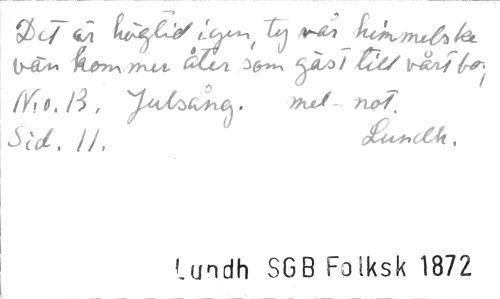 Det är högtid igen, ty vår himmelske
vän kommer åter som gäst till vårt bo,
N:o. 13. Julsång. mel-not.
Sid. 11. Lundh.
Lundh SGB Folksk 1872